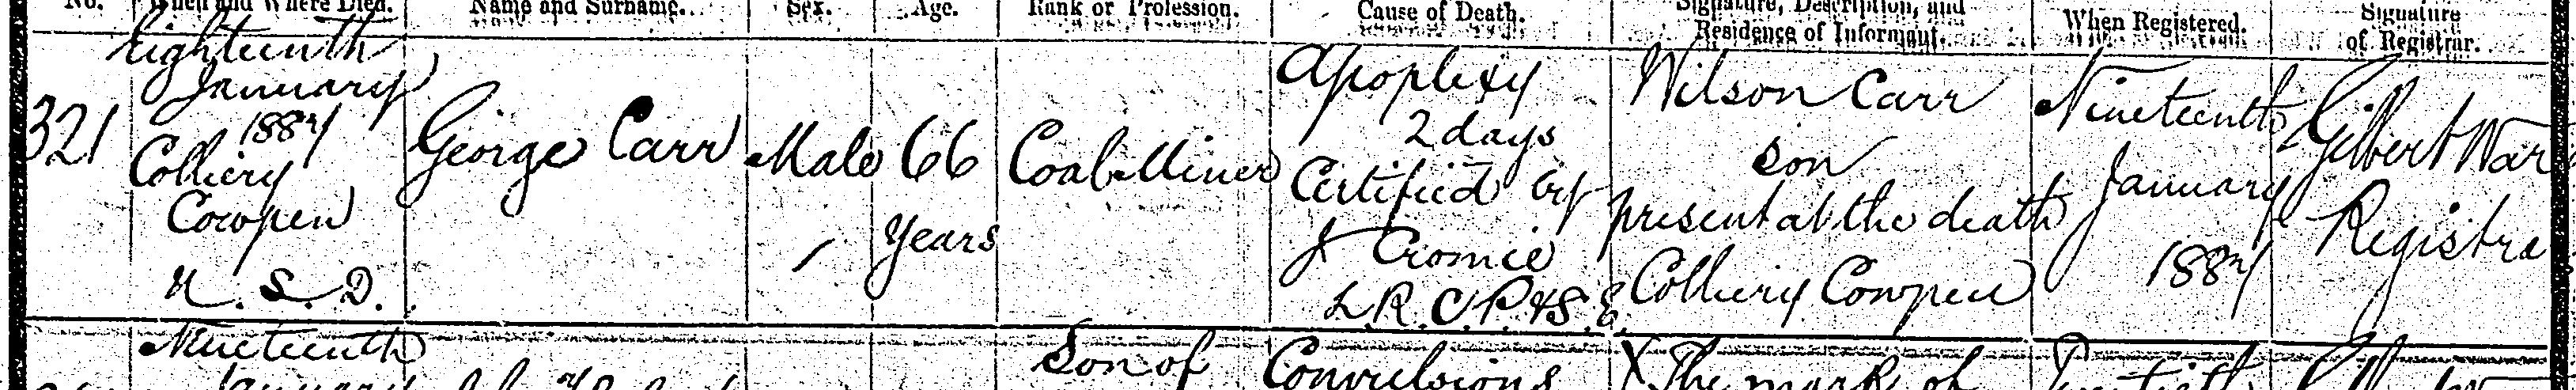 No. When and Where Died. Name and Surname. Sex. Age. Rank or Profession. Cause of Death. Signature, Description, and Residence of Informant. When Registered. Signature of Registrar.
321
Eighteenth
January
1887
Colliery
Cowpen
U.S.D.
George Carr
Male
66
Years
Coal Miner
Apoplexy
2 days
Certified by
J Cromie
L.R.C.P.&S.E.
Wilson Carr
son
present at the death
Colliery Cowpen
Nineteenth
January
1887
Gilbert War
Registra
Nineteenth
January
Son of
Convulsions
X The mark of